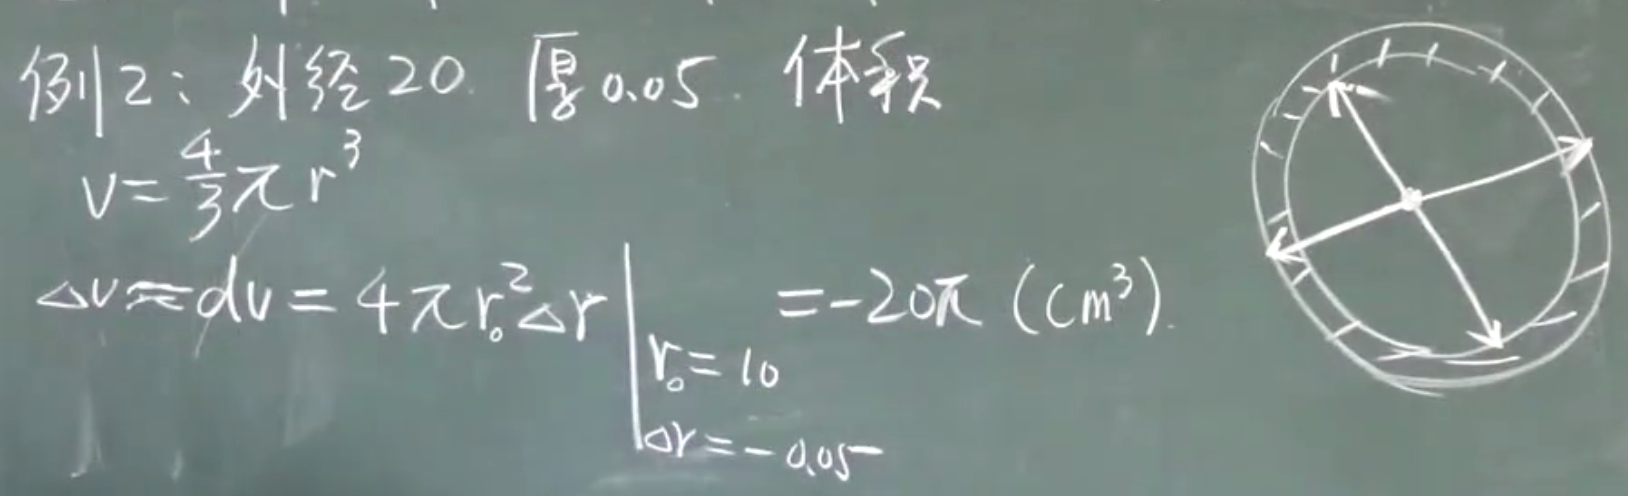 例2: 外径20. 厚0.05. 体积
V=4/3πr³
△V≈dv=4πr₀²△r| r₀=10 △r=-0.05 =-20π (cm³).